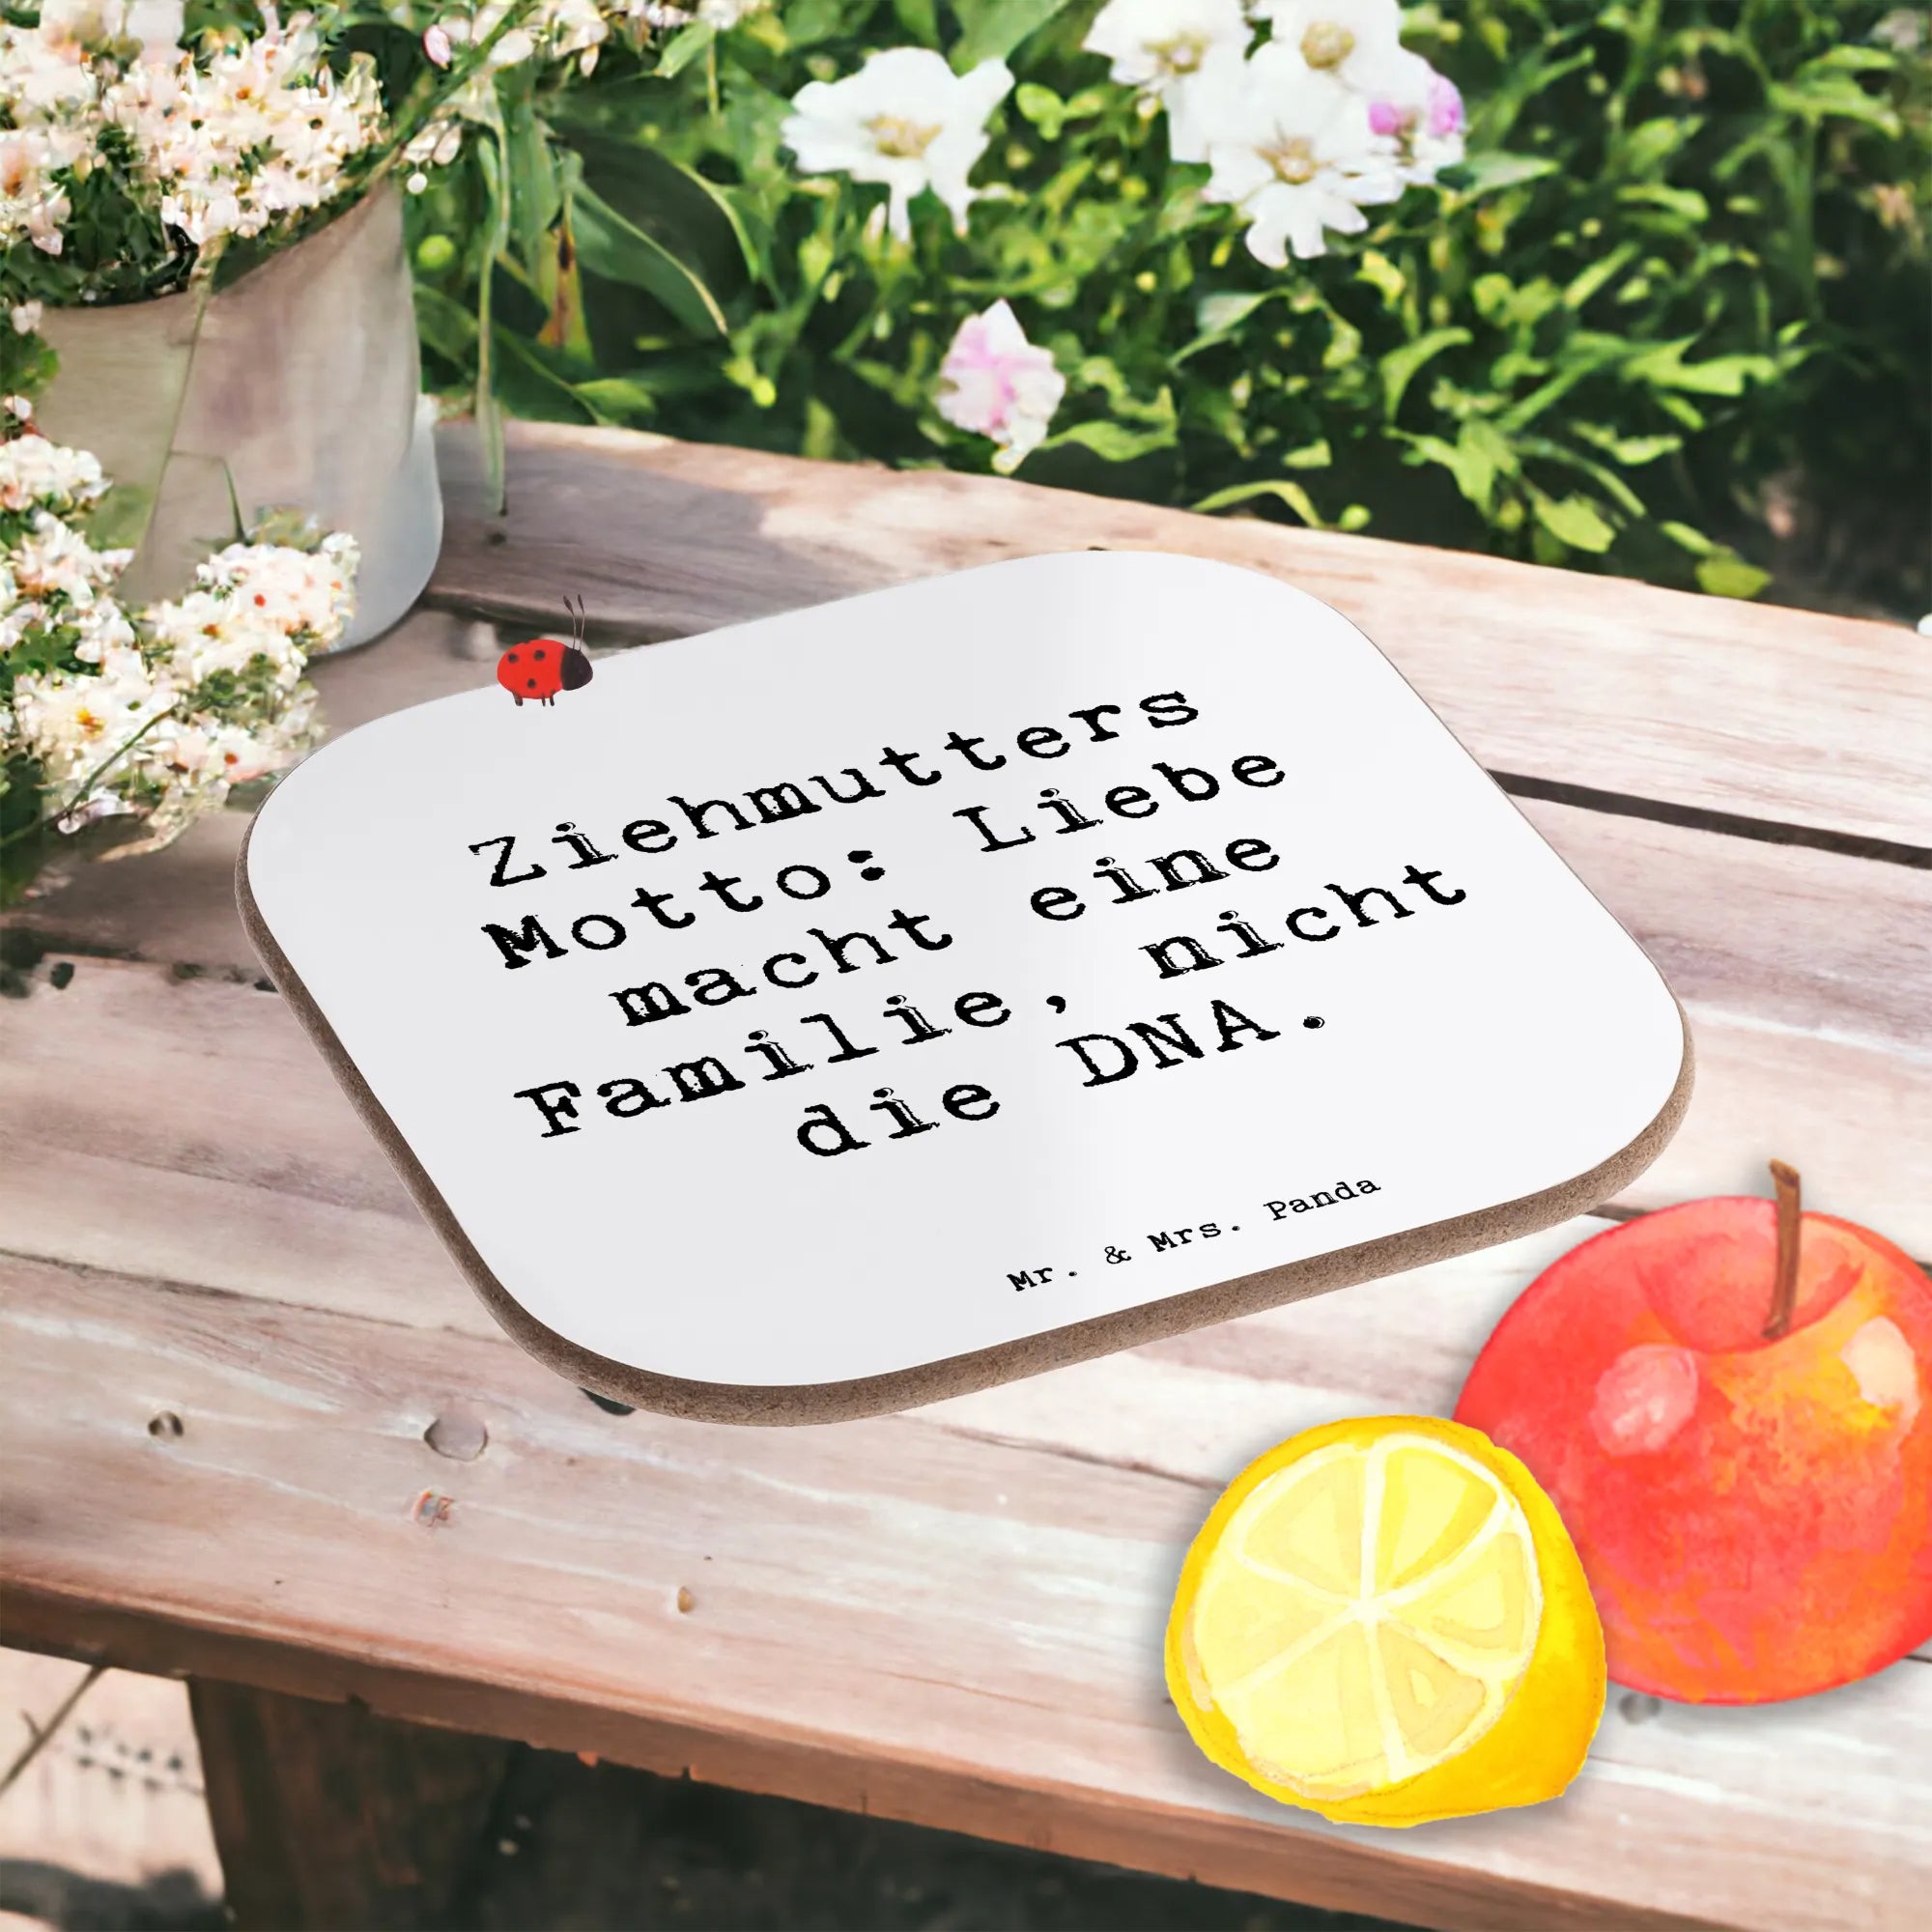 Ziehmutters
Motto: Liebe
macht eine
Familie, nicht
die DNA.
Mr. & Mrs. Panda